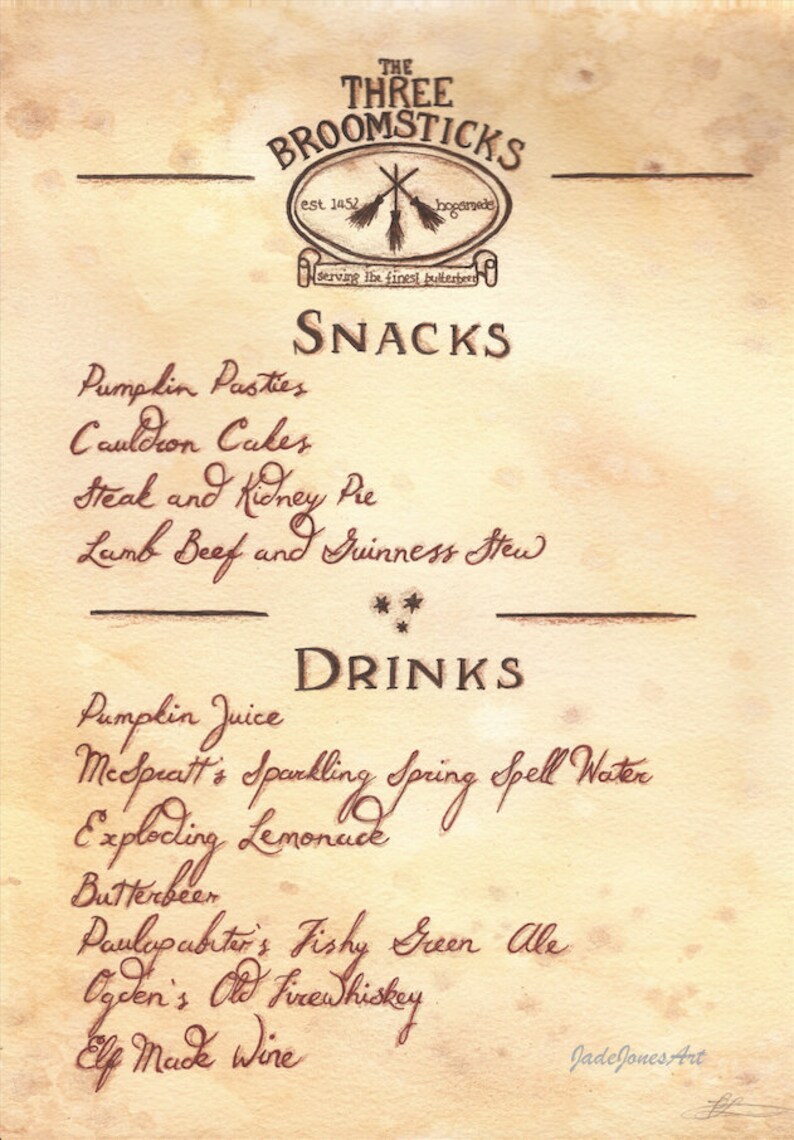 THE
THREE
BROOMSTICKS
est 1452 hogsmede
serving the finest butterbeer
SNACKS
Pumpkin Pasties
Cauldron Cakes
Steak and Kidney Pie
Lamb Beef and Guinness Stew
DRINKS
Pumpkin Juice
McSpratt's Sparkling Spring Spell Water
Exploding Lemonade
Butterbeer
Fishy Green Ale
Ogden's Old Firewhiskey
Elf Made Wine
JadeJonesArt